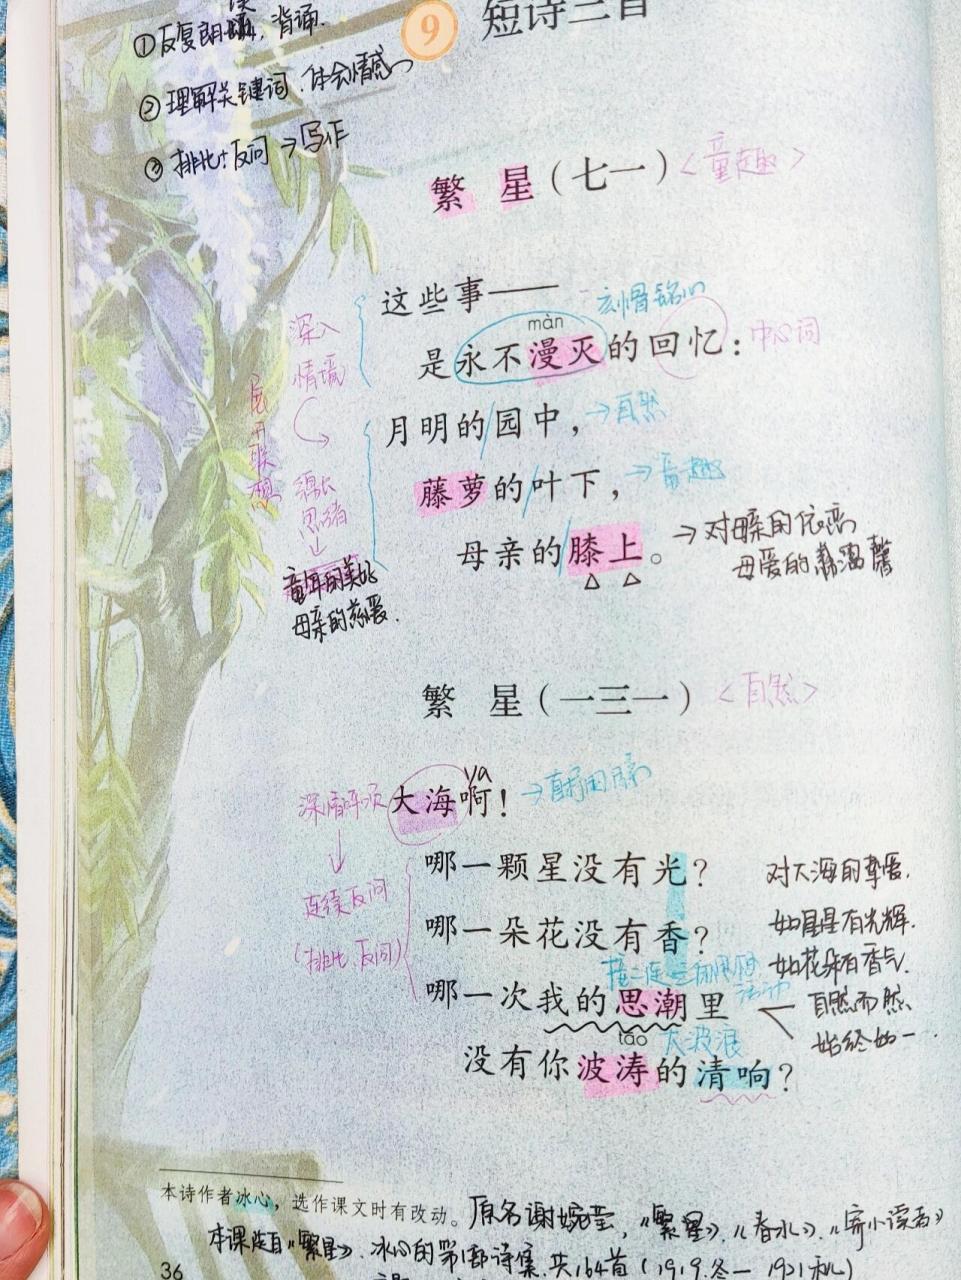 ①反复朗诵，背诵．
②理解关键词、体会情感
③排比+反问→写作
9 短诗三首
繁 星（七一）
＜童趣＞
这些事——
刻骨铭心
màn
是永不漫灭的回忆：
中心词
深入
情境
展开联想
月明的园中，
→自然
藤萝的叶下，
→童趣
绵长
思绪
母亲的膝上。
→对母亲的依恋
母爱的温馨
童年的美好
母亲的慈爱．
繁 星（一三一）
＜自然＞
ya
大海啊！
→直抒胸臆
深情呼唤
哪一颗星没有光？
对大海的挚爱．
连续反问
（排比、反问）
哪一朵花没有香？
如星星有光辉．
如花朵有香气．
活动
哪一次我的思潮里
自然而然
始终如一．
tāo
大波浪
没有你波涛的清响？
本诗作者冰心，选作课文时有改动。
原名谢婉莹，《繁星》、《春水》、《寄小读者》
本课选自《繁星》．冰心的第1部诗集．共164首（1919．冬－1921秋）
36